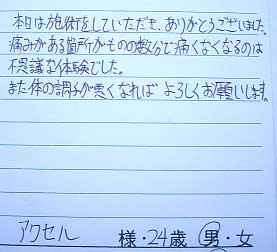 本日は施術をしていただき、ありがとうございました。
痛みがある箇所がものの数分で痛くなくなるのは
不思議な体験でした。
また体の調子が悪くなれば よろしくお願いします。
アクセル 様・24歳 男・女